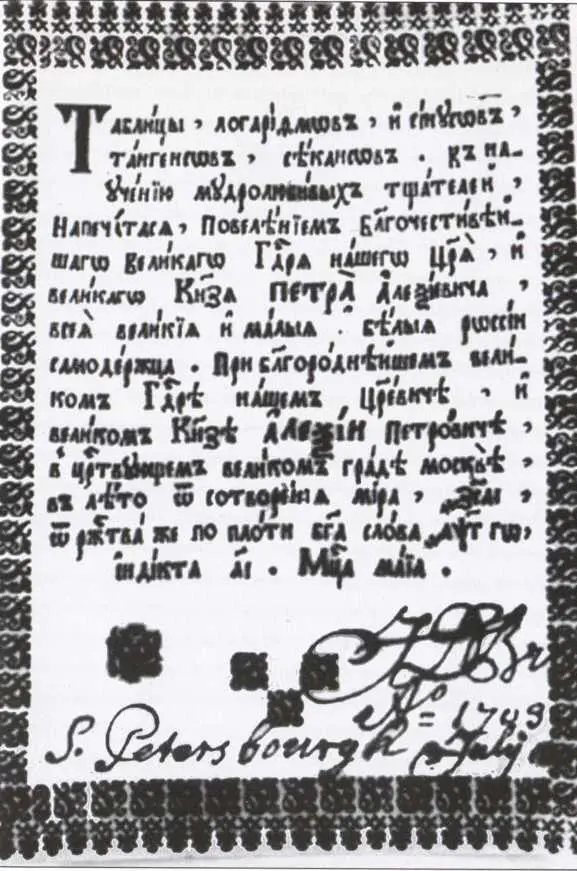 Таблицы, логарідмѡвъ, и сінусѡвъ,
тангенсѡвъ, сѣкансѡвъ. къ на-
ученію мудролюбивыхъ тщателей,
Напечатаса, повелѣніемъ благочестивѣй-
шагѡ великагѡ Гдⷭ҇ра нашегѡ Црѧ̀, и
великагѡ Кнѧ́зѧ ПЕТРА̀ Алеѯіевича,
всеѧ̀ великіѧ и малыѧ. бѣлыѧ рѡссіи
самодержца. При бл҃городнѣйшемъ вели-
комъ Гдⷭ҇рѣ нашемъ Црⷭ҇евичѣ, и
великомъ Кнѧ́зѣ Алеѯіи Петровичѣ,
в црⷭ҇твующемъ великомъ градѣ москвѣ,
въ лѣто ѿ сотворениѧ міра,
ѿ ржⷭ҇тва же по плоти бг҃а слова гѡ,
індікта а҃і. Мцⷭ҇а маіа.
Aº = 17
S. Petersbourgk July